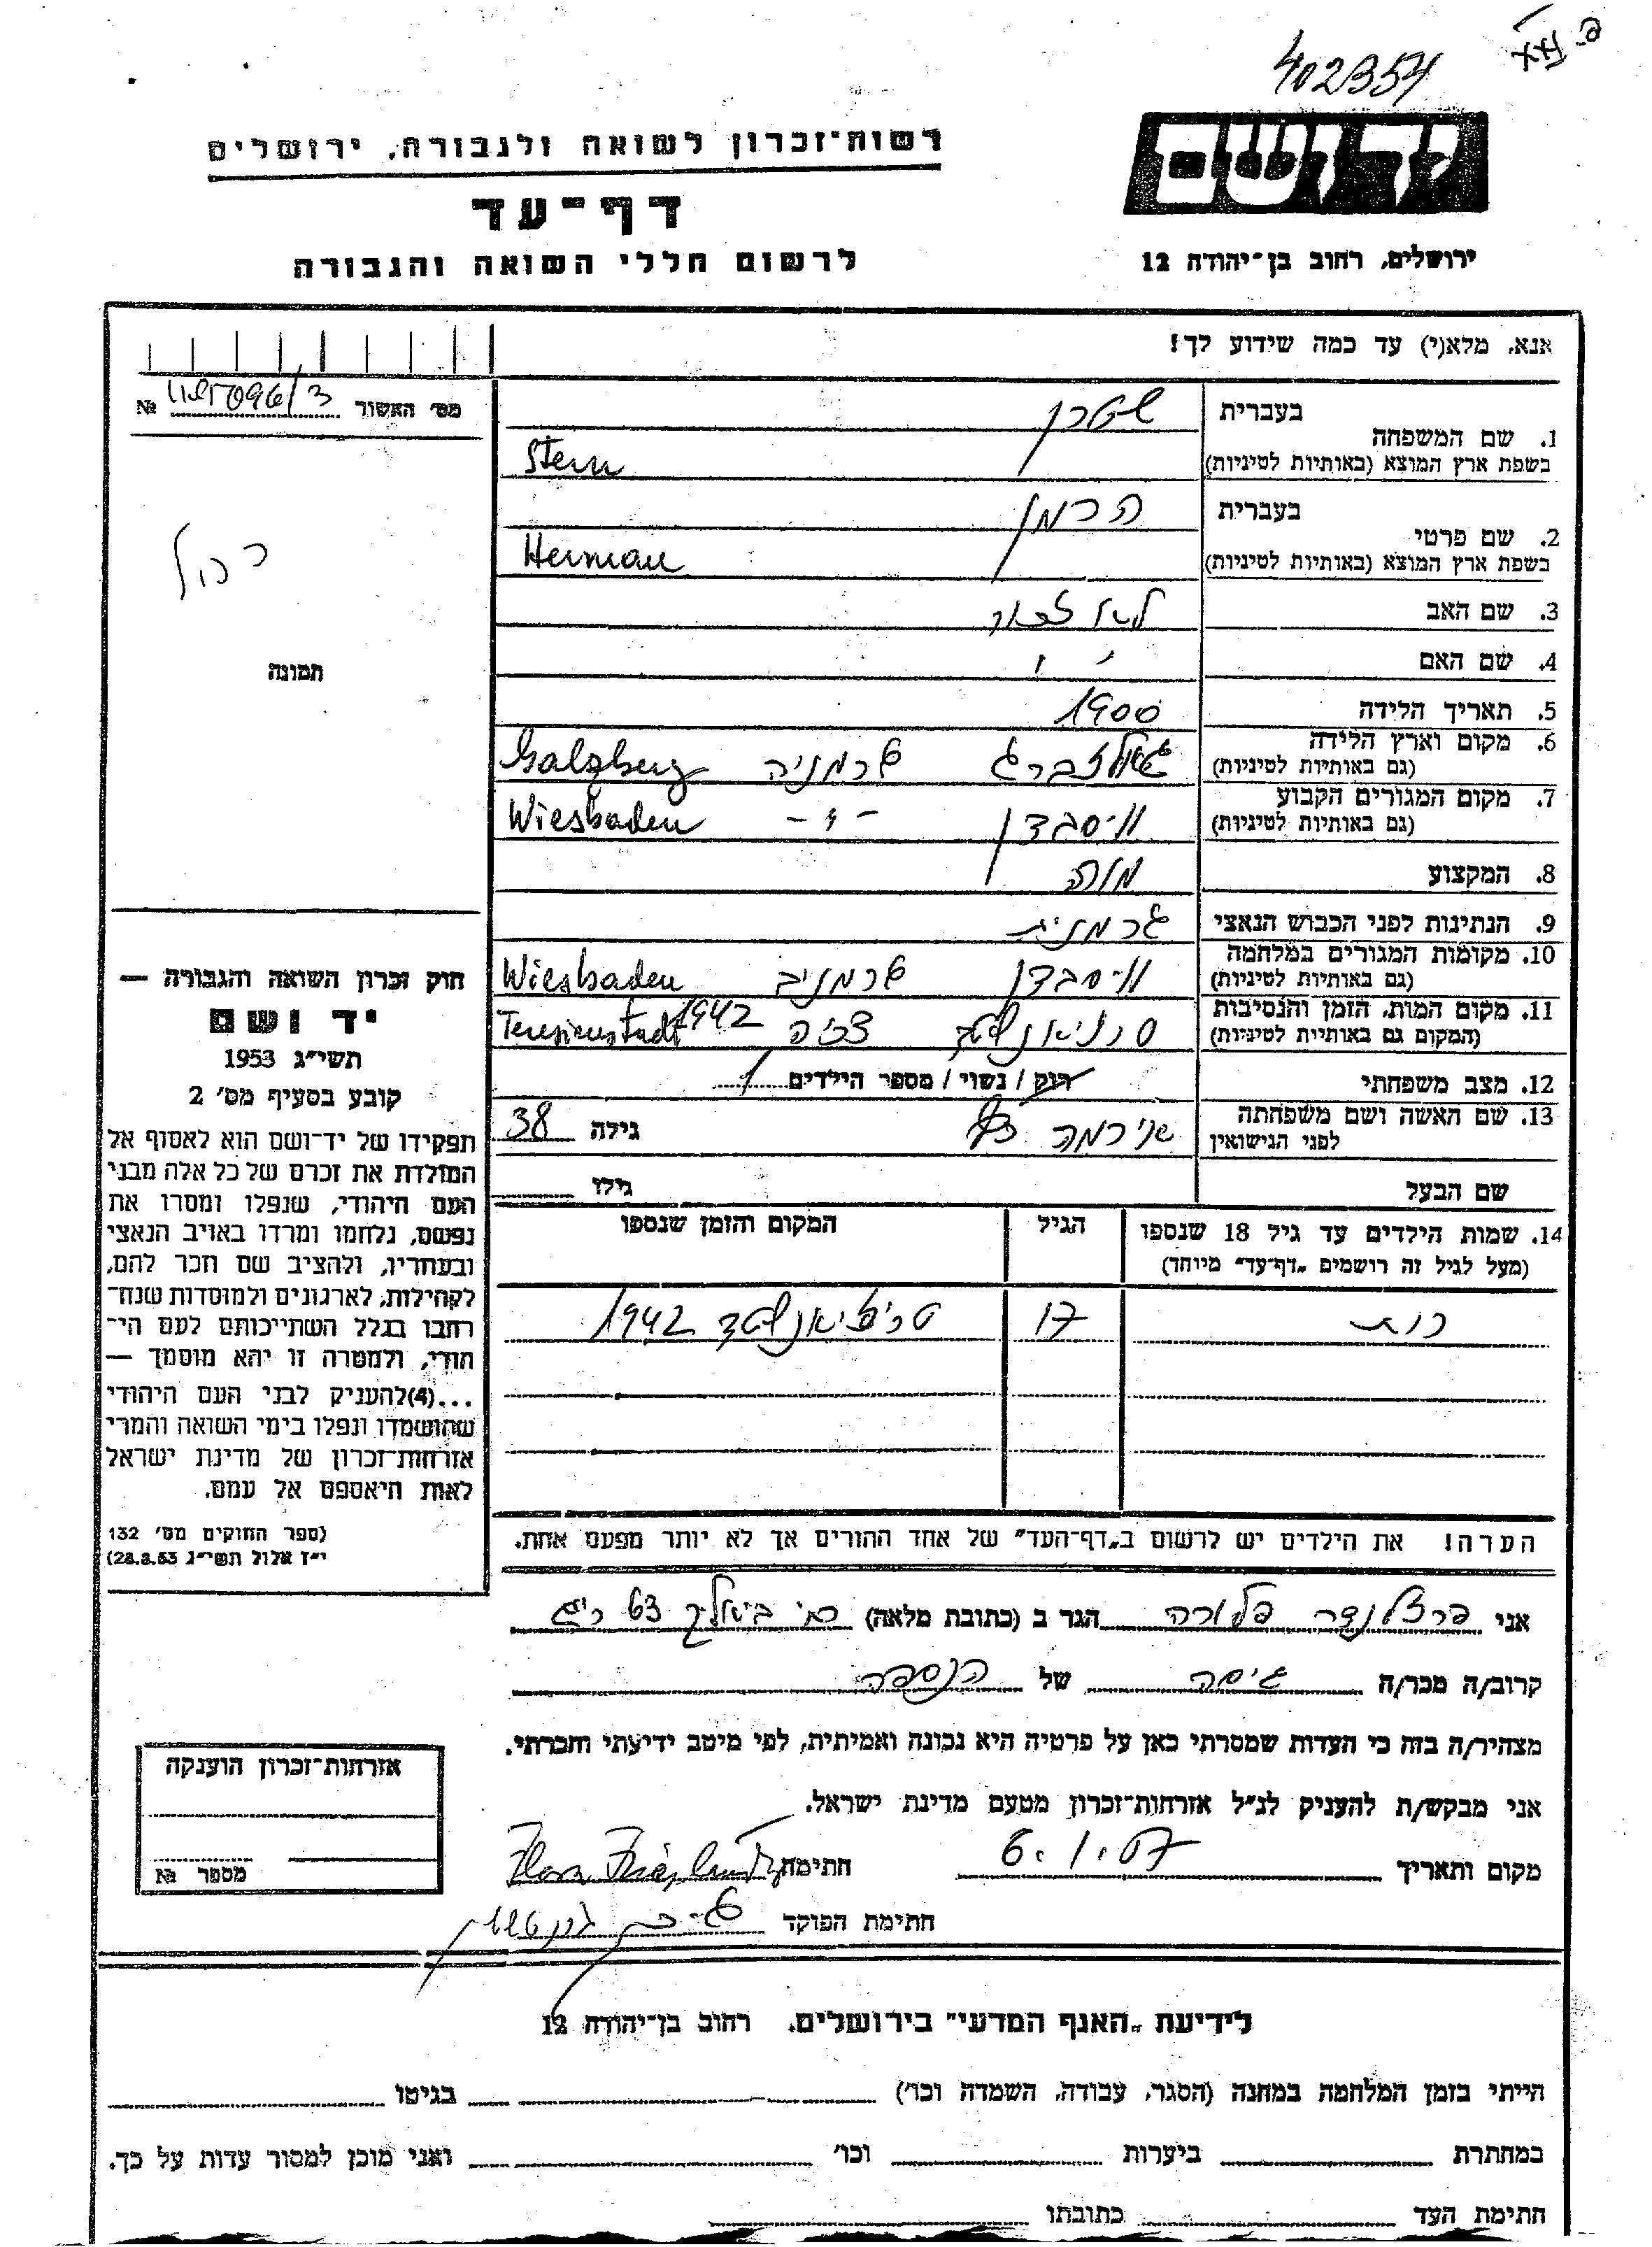 402354
רשות־זכרון לשואה ולגבורה, ירושלים
ידושם
דף־עד
לרשום חללי השואה והגבורה
ירושלים, רחוב בן־יהודה 12
אנא, מלא(י) עד כמה שידוע לך!
מס׳ האשור №
1. שם המשפחה
בעברית שטרן
בשפת ארץ המוצא (באותיות לטיניות) Stern
2. שם פרטי
בעברית הרמן
בשפת ארץ המוצא (באותיות לטיניות) Herman
תמונה
3. שם האב
4. שם האם
5. תאריך הלידה 1900
6. מקום וארץ הלידה
(גם באותיות לטיניות) גרמניה Galzberg
7. מקום המגורים הקבוע
(גם באותיות לטיניות) ויסבדן -"- Wiesbaden
8. המקצוע מורה
9. הנתינות לפני הכבוש הנאצי גרמנית
10. מקומות המגורים במלחמה
(גם באותיות לטיניות) ויסבדן גרמניה Wiesbaden
11. מקום המות, הזמן והנסיבות
(המקום גם באותיות לטיניות) צכיה 1942 Teresienstadt
12. מצב משפחתי רווק / נשוי / מספר הילדים 1
13. שם האשה ושם משפחתה
לפני הנישואין אירמה גילה 38
שם הבעל גילו
14. שמות הילדים עד גיל 18 שנספו
(מעל לגיל זה רושמים „דף־עד״ מיוחד)
הגיל
המקום והזמן שנספו
רות 17 1942
הערה! את הילדים יש לרשום ב„דף־העד״ של אחד ההורים אך לא יותר מפעם אחת.
חוק זכרון השואה והגבורה —
יד ושם
תשי״ג 1953
קובע בסעיף מס׳ 2
תפקידו של יד־ושם הוא לאסוף אל
המולדת את זכרם של כל אלה מבני
העם היהודי, שנפלו ומסרו את
נפשם, נלחמו ומרדו באויב הנאצי
ובעוזריו, ולהציב שם וזכר להם,
לקהילות, לארגונים ולמוסדות שנח־
רבו בגלל השתייכותם לעם הי־
הודי, ולמטרה זו יהא מוסמך —
...(4) להעניק לבני העם היהודי
שהושמדו ונפלו בימי השואה והמרי
אזרחות־זכרון של מדינת ישראל
לאות היאספם אל עמם.
(ספר החוקים מס׳ 132
י״ז אלול תשי״ג 28.8.53)
אני פרידלנדר פלורה הגר ב (כתובת מלאה) ביאליק 63
קרוב/ה מכר/ה גיסה של הנספה
מצהיר/ה בזה כי העדות שמסרתי כאן על פרטיה היא נכונה ואמיתית, לפי מיטב ידיעתי והכרתי.
אני מבקש/ת להעניק לנ״ל אזרחות־זכרון מטעם מדינת ישראל.
מקום ותאריך 6.1.57 חתימה
חתימת הפוקד
אזרחות־זכרון הוענקה
מספר №
לידיעת „האגף המדעי״ בירושלים, רחוב בן־יהודה 12
הייתי בזמן המלחמה במחנה (הסגר, עבודה, השמדה וכו׳) בגיטו
במחתרת ביערות וכו׳ ואני מוכן למסור עדות על כך.
חתימת העד כתובתו